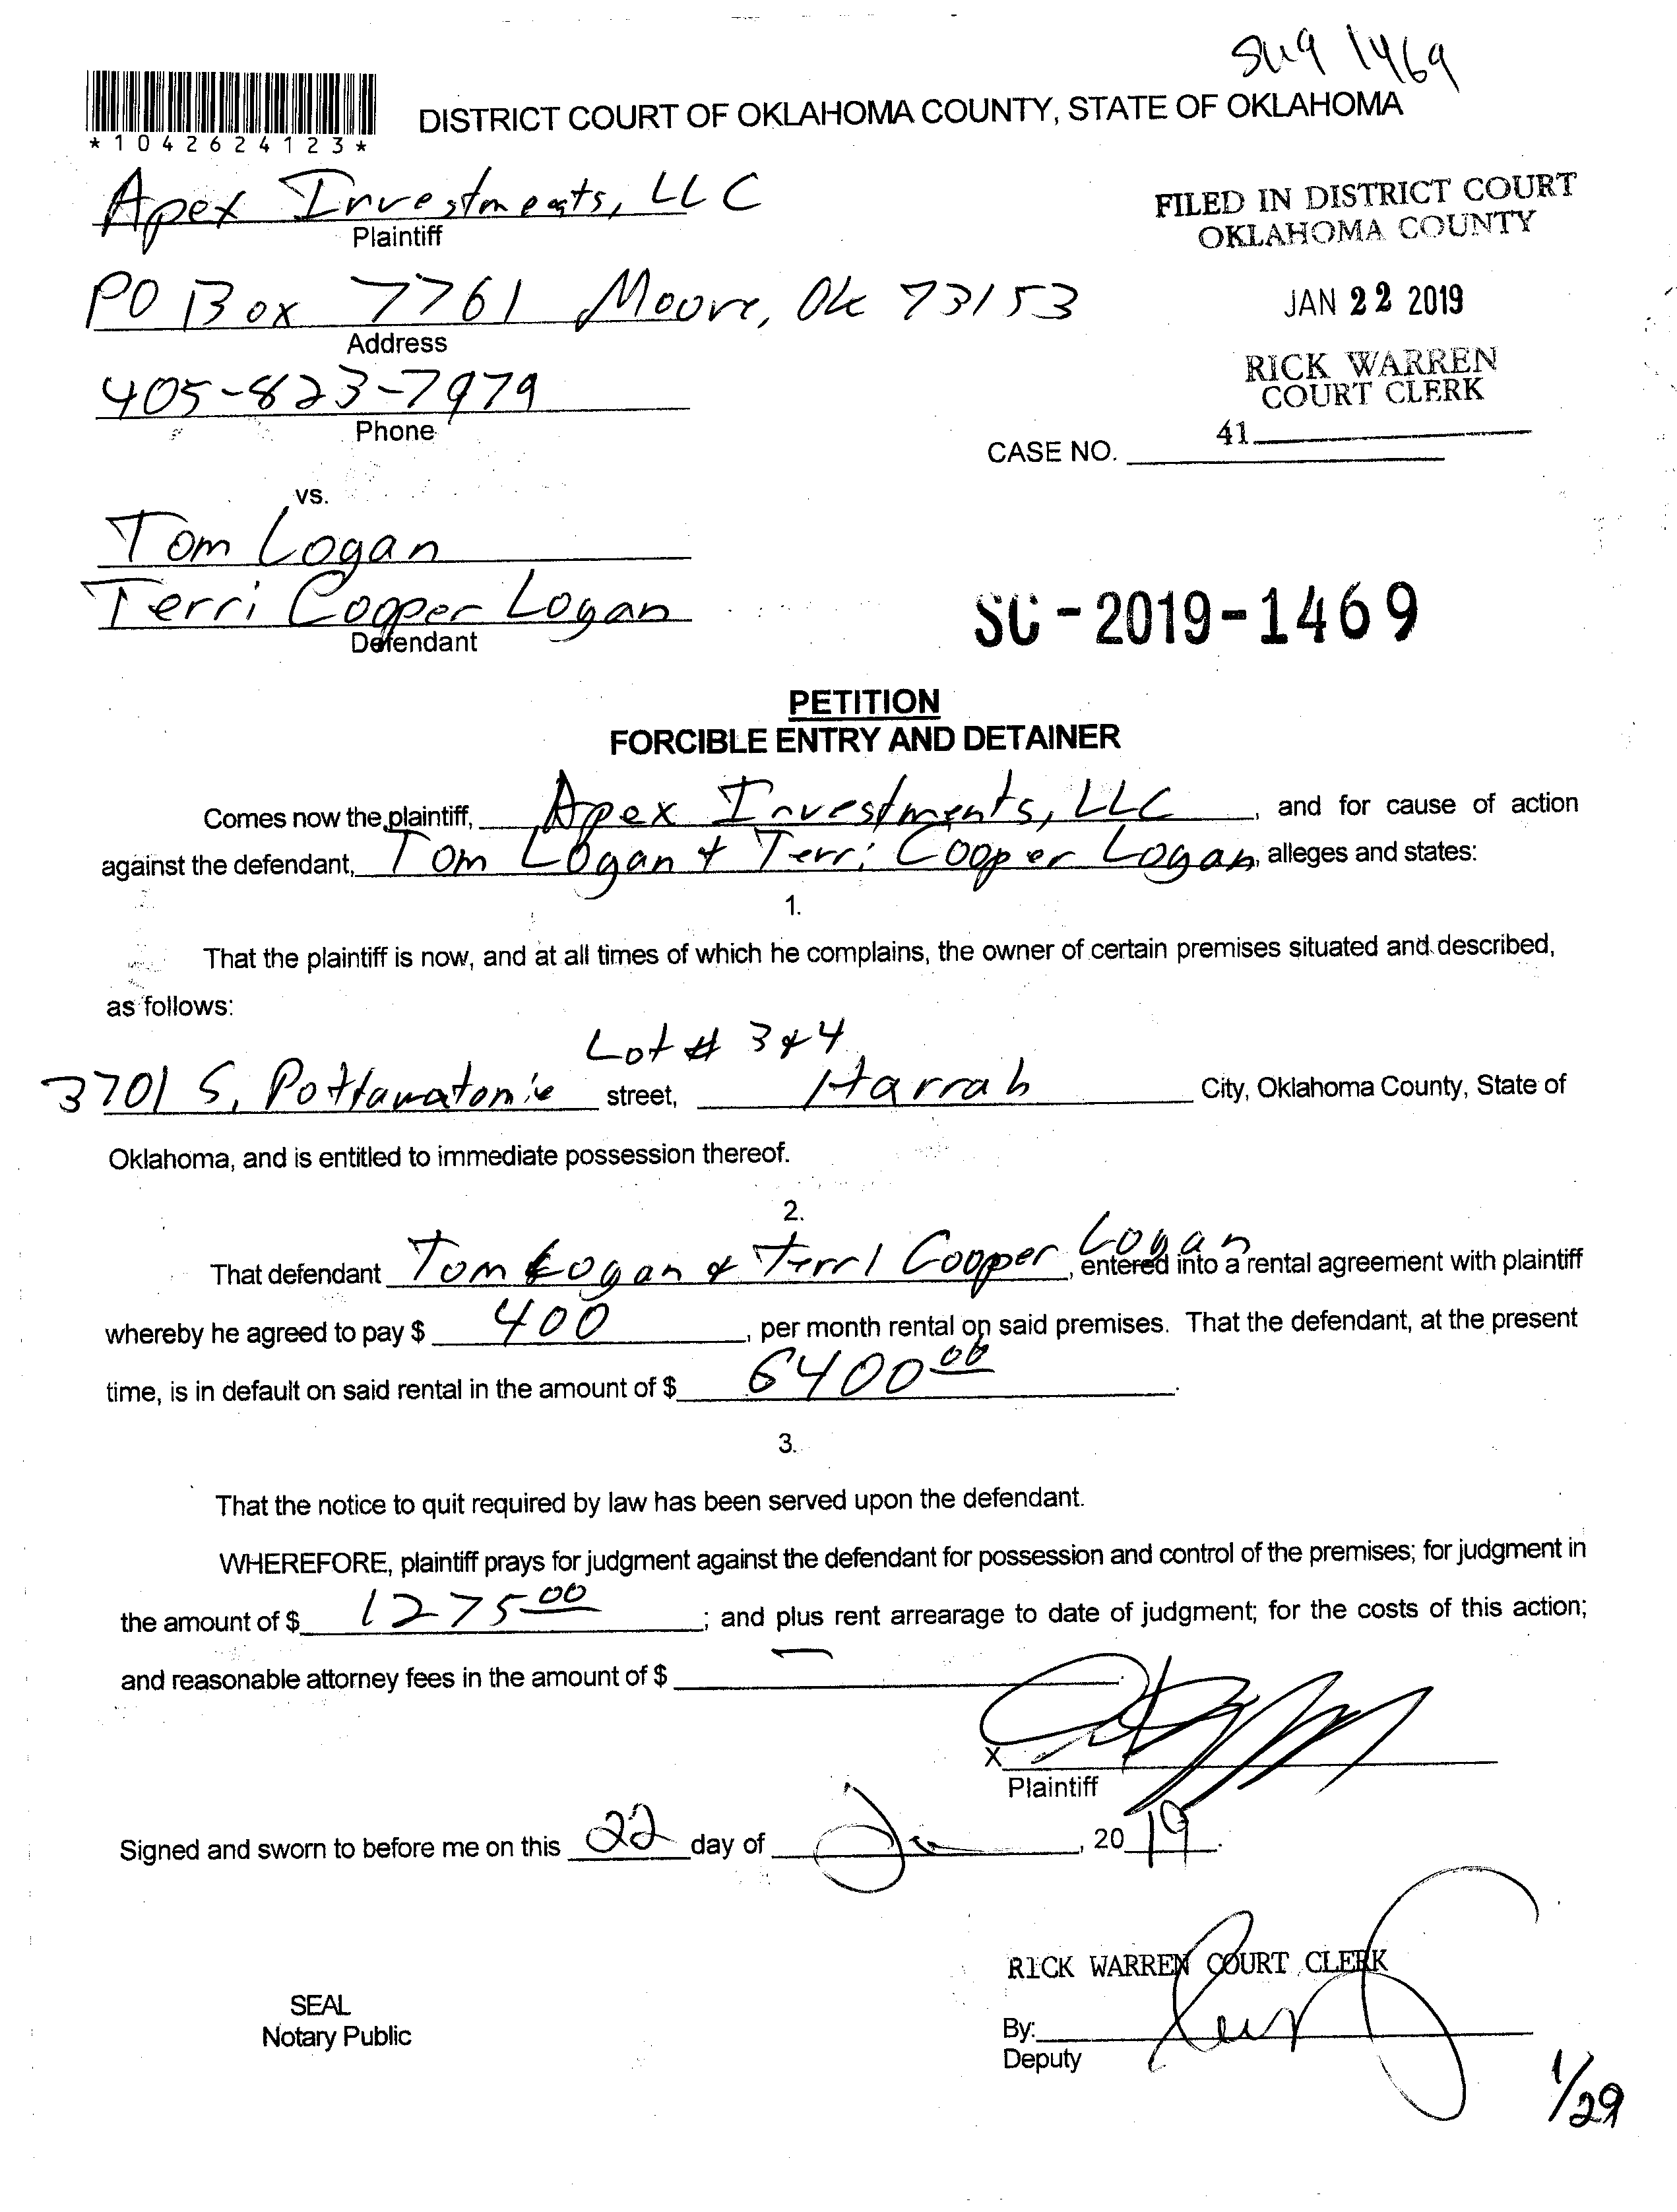 1469
DISTRICT COURT OF OKLAHOMA COUNTY, STATE OF OKLAHOMA
*1042624123*
Apex Investments, LLC
Plaintiff
FILED IN DISTRICT COURT
OKLAHOMA COUNTY
PO Box 7761 Moore, Ok 73153
Address
JAN 22 2019
405-823-7979
Phone
RICK WARREN
COURT CLERK
41
CASE NO.
vs.
Tom Logan
Terri Cooper Logan
Defendant
SC-2019-1469
PETITION
FORCIBLE ENTRY AND DETAINER
Comes now the plaintiff, Apex Investments, LLC, and for cause of action
against the defendant, Tom Logan + Terri Cooper Logan, alleges and states:
1.
That the plaintiff is now, and at all times of which he complains, the owner of certain premises situated and described,
as follows:
Lot # 3 & 4
3701 S. Pottawatomie street, Harrah City, Oklahoma County, State of
Oklahoma, and is entitled to immediate possession thereof.
2.
That defendant Tom Logan & Terri Cooper Logan, entered into a rental agreement with plaintiff
whereby he agreed to pay $ 400, per month rental on said premises. That the defendant, at the present
time, is in default on said rental in the amount of $ 6400 00.
3.
That the notice to quit required by law has been served upon the defendant.
WHEREFORE, plaintiff prays for judgment against the defendant for possession and control of the premises; for judgment in
the amount of $ 1275 00; and plus rent arrearage to date of judgment; for the costs of this action;
and reasonable attorney fees in the amount of $
X
Plaintiff
Signed and sworn to before me on this 22 day of , 2019.
RICK WARREN COURT CLERK
SEAL
Notary Public
By:
Deputy
1/29